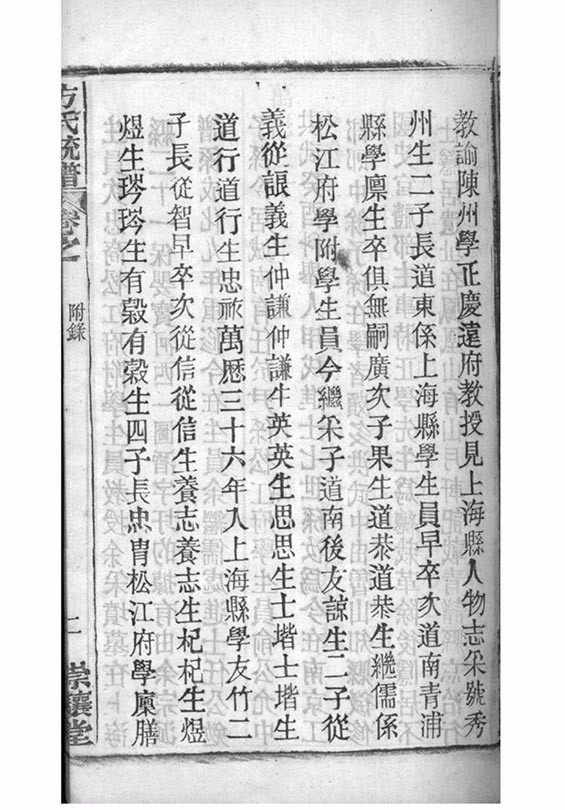 教諭陳州學正慶遠府教授見上海縣人物志宋號秀
州生二子長道東係上海縣學生員早卒次道南青浦
縣學廩生卒俱無嗣廣次子果生道恭道恭生繼儒係
松江府學附學生員今繼宋子道南後友諒生二子從
義從誏義生仲謙仲謙生英英生思思生士堦士堦生
道行道行生忠祿萬曆三十六年入上海縣學友竹二
子長從智早卒次從信從信生養志養志生杞杞生煜
煜生琌琌生有穀有穀生四子長忠胄松江府學廩膳
方氏統譜
卷之
附錄
二
崇讓堂